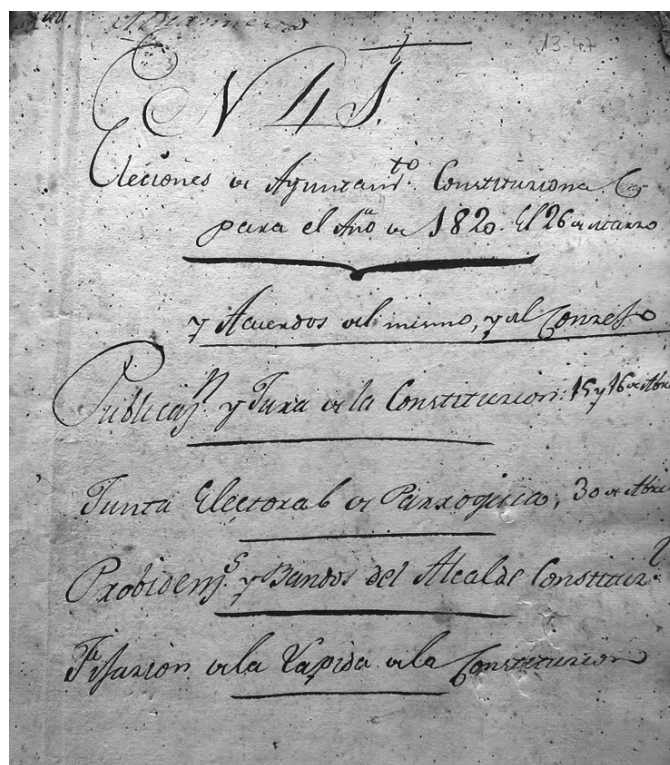 13-47
EN 4 J.
Elecciones de Ayuntam.to Constituziona
para el Año de 1820. El 26 de Marzo
y Acuerdos del mismo, y del Conzejo
Publicaz.n y Jura de la Constituzion: 15 y 16 de Abri
Junta Electoral de Parroquia, 30 de Abri
Probidenz.s y Bandos del Alcalde Constituz.l
Fijazion de la Lapida de la Constituzion